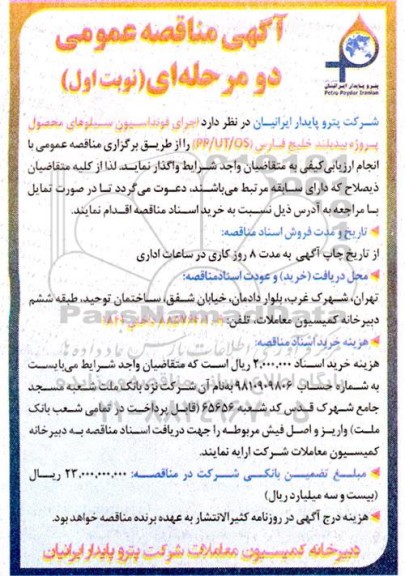 آگهی مناقصه عمومی
دو مرحله‌ای (نوبت اول)
پترو پایدار ایرانیان
Petro Paydar Iranian
شرکت پترو پایدار ایرانیـان در نظر دارد اجرای فونداسیون سیلوهای محصول
پروژه بیدبلند خلیج فـارس (PP/UT/OS) را از طریـق برگزاری مناقصه عمومی با
انجام ارزیابی کیفی به متقاضیان واجد شـرایط واگذار نمایـد، لذا از کلیه متقاضیان
ذیصلاح که دارای سـابقه مرتبط می‌باشـند، دعوت می‌گردد تـا در صورت تمایل
بـا مراجعه به آدرس ذیل نسـبت به خرید اسـناد مناقصه اقدام نمایند.
تاریخ و مدت فروش اسناد مناقصه:
از تاریخ چاپ آگهی به مدت ۸ روز کاری در ساعات اداری
محل دریافت (خرید) و عودت اسنادمناقصه:
تهران، شهرک غرب، بلوار دادمان، خیابان شـفق، سـاختمان توحید، طبقه ششم
دبیرخانه کمیسیون معاملات، تلفن:
هزینه خرید اسناد مناقصه:
هزینه خرید اسـناد ۲,۰۰۰,۰۰۰ ریال اسـت که متقاضیان واجد شـرایط می‌بایسـت
به شماره حساب ۹۸۱۰۹۰۹۸۰۶ به‌نام آن شـرکت نزد بانک‌ملت شـعبه مسـجد
جامع شهرک قدس کد شعبه ۶۵۶۵۶ (قابل پرداخت در تمامی شعب بانک
ملت) واریـز و اصـل فیش مربوطه را جهت دریافت اسناد مناقصه به دبیرخانه
کمیسیون معاملات شرکت ارایه نمایند.
مبلـغ تضمیـن بانکـی شـرکت در مناقصـه: ۲۳,۰۰۰,۰۰۰,۰۰۰ ریـال
(بیست و سه میلیارد ریال)
هزینه درج آگهی در روزنامه کثیرالانتشار به عهده برنده مناقصه خواهد بود.
دبیرخانه کمیسیون معاملات شرکت پترو پایدار ایرانیان